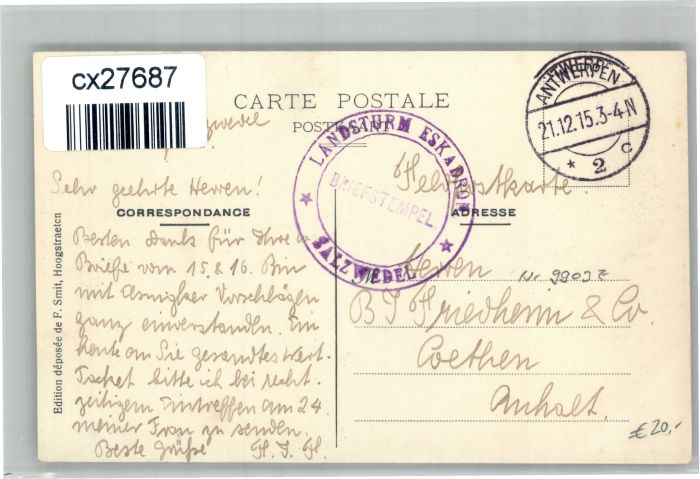 cx27687
CARTE POSTALE
POSTKAART
ANTWERPEN
21.12.15.3-4N
* 2 C
LANDSTURM ESKADRON
BRIEFSTEMPEL
* SALZWEDEL *
Feldpostkarte.
Sehr geehrte Herren!
CORRESPONDANCE
ADRESSE
Besten Dank für Ihre
Briefe vom 15. & 16. Bin
mit Vorschlägen
ganz einverstanden. Ein
heute an Sie gesandtes Wert-
Packet bitte ich bei recht-
zeitigem Eintreffen am 24
meiner Frau zu senden.
Beste Grüße
Herren
B J Friedheim & Co.
Coethen
Anhalt.
€20,-
Edition déposée de F. Smit, Hoogstraeten